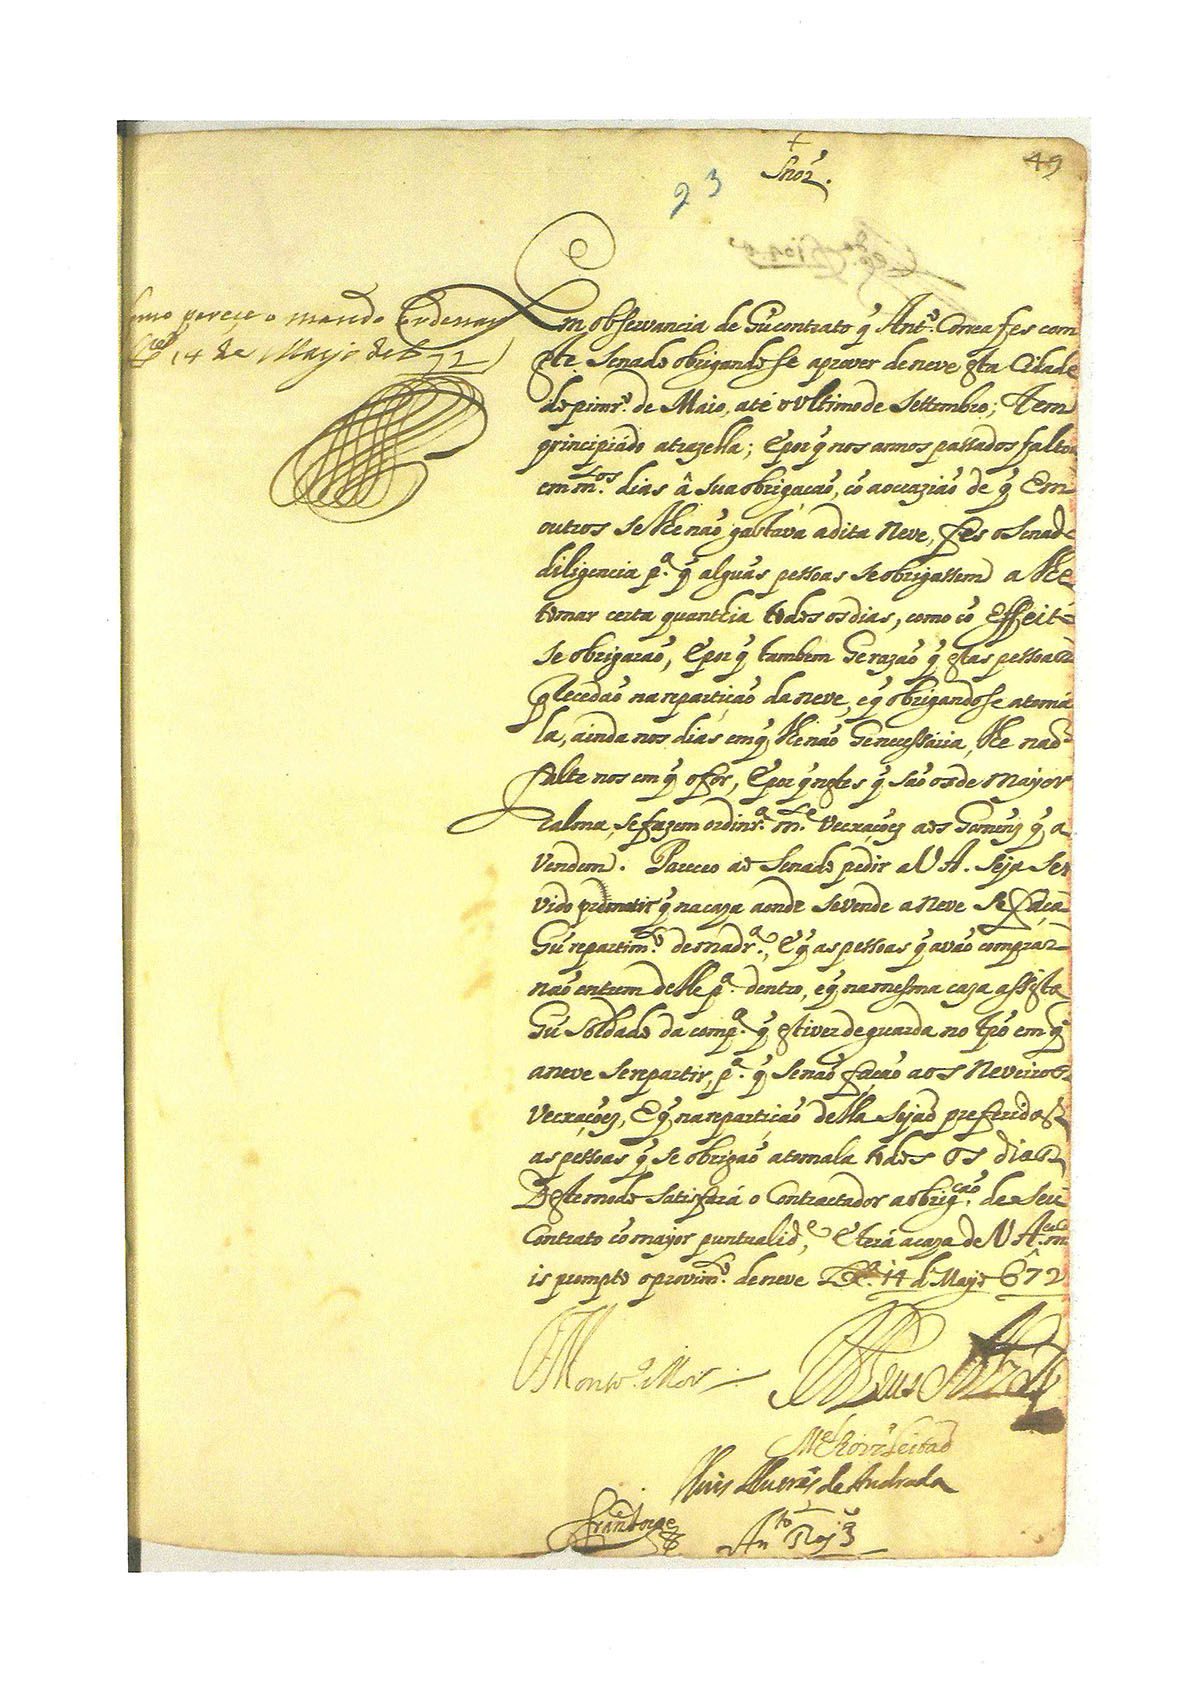 49
Snor.
23
Como pareçe o mando Ordenar
Lxª 14 de Mayo de 672
Em observancia de hũ contrato q̃ Antº. Correa fes com
este Senado obrigandosse a prover de neve esta Cidade
do pimrº. de Maio, até o ultimo de Settembro; Tem
principiádo a trazella; E por q̃ nos annos passados faltou
em m.tos dias â sua obrigacaõ, cõ a occaziaõ de q̃ Em
outros se lhe naõ gastava a dita Neve, fes o Senado
diligencia pª. q̃ alguãs pessoas se obrigassem a lhe
tomar certa quanthia todos os dias, como cõ Effeito
se obrigaraõ, E por q̃ tambem he razaõ q̃ estas pessoas
precedaõ na repartiçaõ da neve, e q̃ obrigandose a tomá
la, ainda nos dias em q̃ lhe naõ he necessária, lhe naõ
falte nos em q̃ o for, E por q̃ nestes q̃ saõ os de mayor
calma, se fazem ordinrª.m.te vexações aos homens q̃ a
vendem. Pareceo ao Senado pedir a V A. seja ser
vido premitir q̃ na caza aonde se vende a Neve se faça
hũ repartim.to de madrª., E q̃ as pessoas q̃ a vaõ comprar
naõ entrem delle pª. dentro, e q̃ na mesma caza assista
hũ soldado da compª. q̃ estiver de guarda no tp̃o em q̃
a neve se repartir, pª. q̃ se naõ façaõ aos Neveiros
vexações, E q̃ na repartiçaõ della sejaõ preferidos
as pessoas q̃ se obrigaõ a tomala todos os dias
Deste modo satisfará o Contractador a obrig.çaõ de seu
Contrato cõ mayor puntualid.e, E terá a caza de V A. ma
is prompto o provim.to de neve Lxª. 14 de Mayo 672
Montrº. Mor
Mel Roiz Leitaõ
Luis Alvres de Andrada
Ant.to Roiz